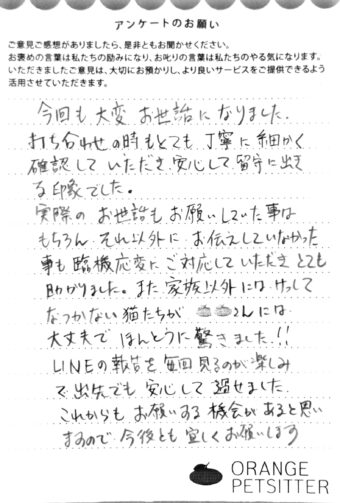 アンケートのお願い
ご意見ご感想がありましたら、是非ともお聞かせください。
お褒めの言葉は私たちの励みになり、お叱りの言葉は私たちのやる気になります。
いただきましたご意見は、大切にお預かりし、より良いサービスをご提供できるよう
活用させていただきます。
今回も大変お世話になりました。
打ち合わせの時もとても丁寧に細かく
確認していただき、安心して留守に出き
る印象でした。
実際のお世話もお願いしていた事は
もちろん、それ以外にお伝えしていなかった
事も臨機応変にご対応していただきとても
助かりました。また家族以外にはけっして
なつかない猫たちが さんには
大丈夫でほんとうに驚きました!!
LINEの報告を毎回見るのが楽しみ
で出先でも安心して過せました。
これからもお願いする機会があると思い
ますので今後とも宜しくお願いします
ORANGE
PETSITTER